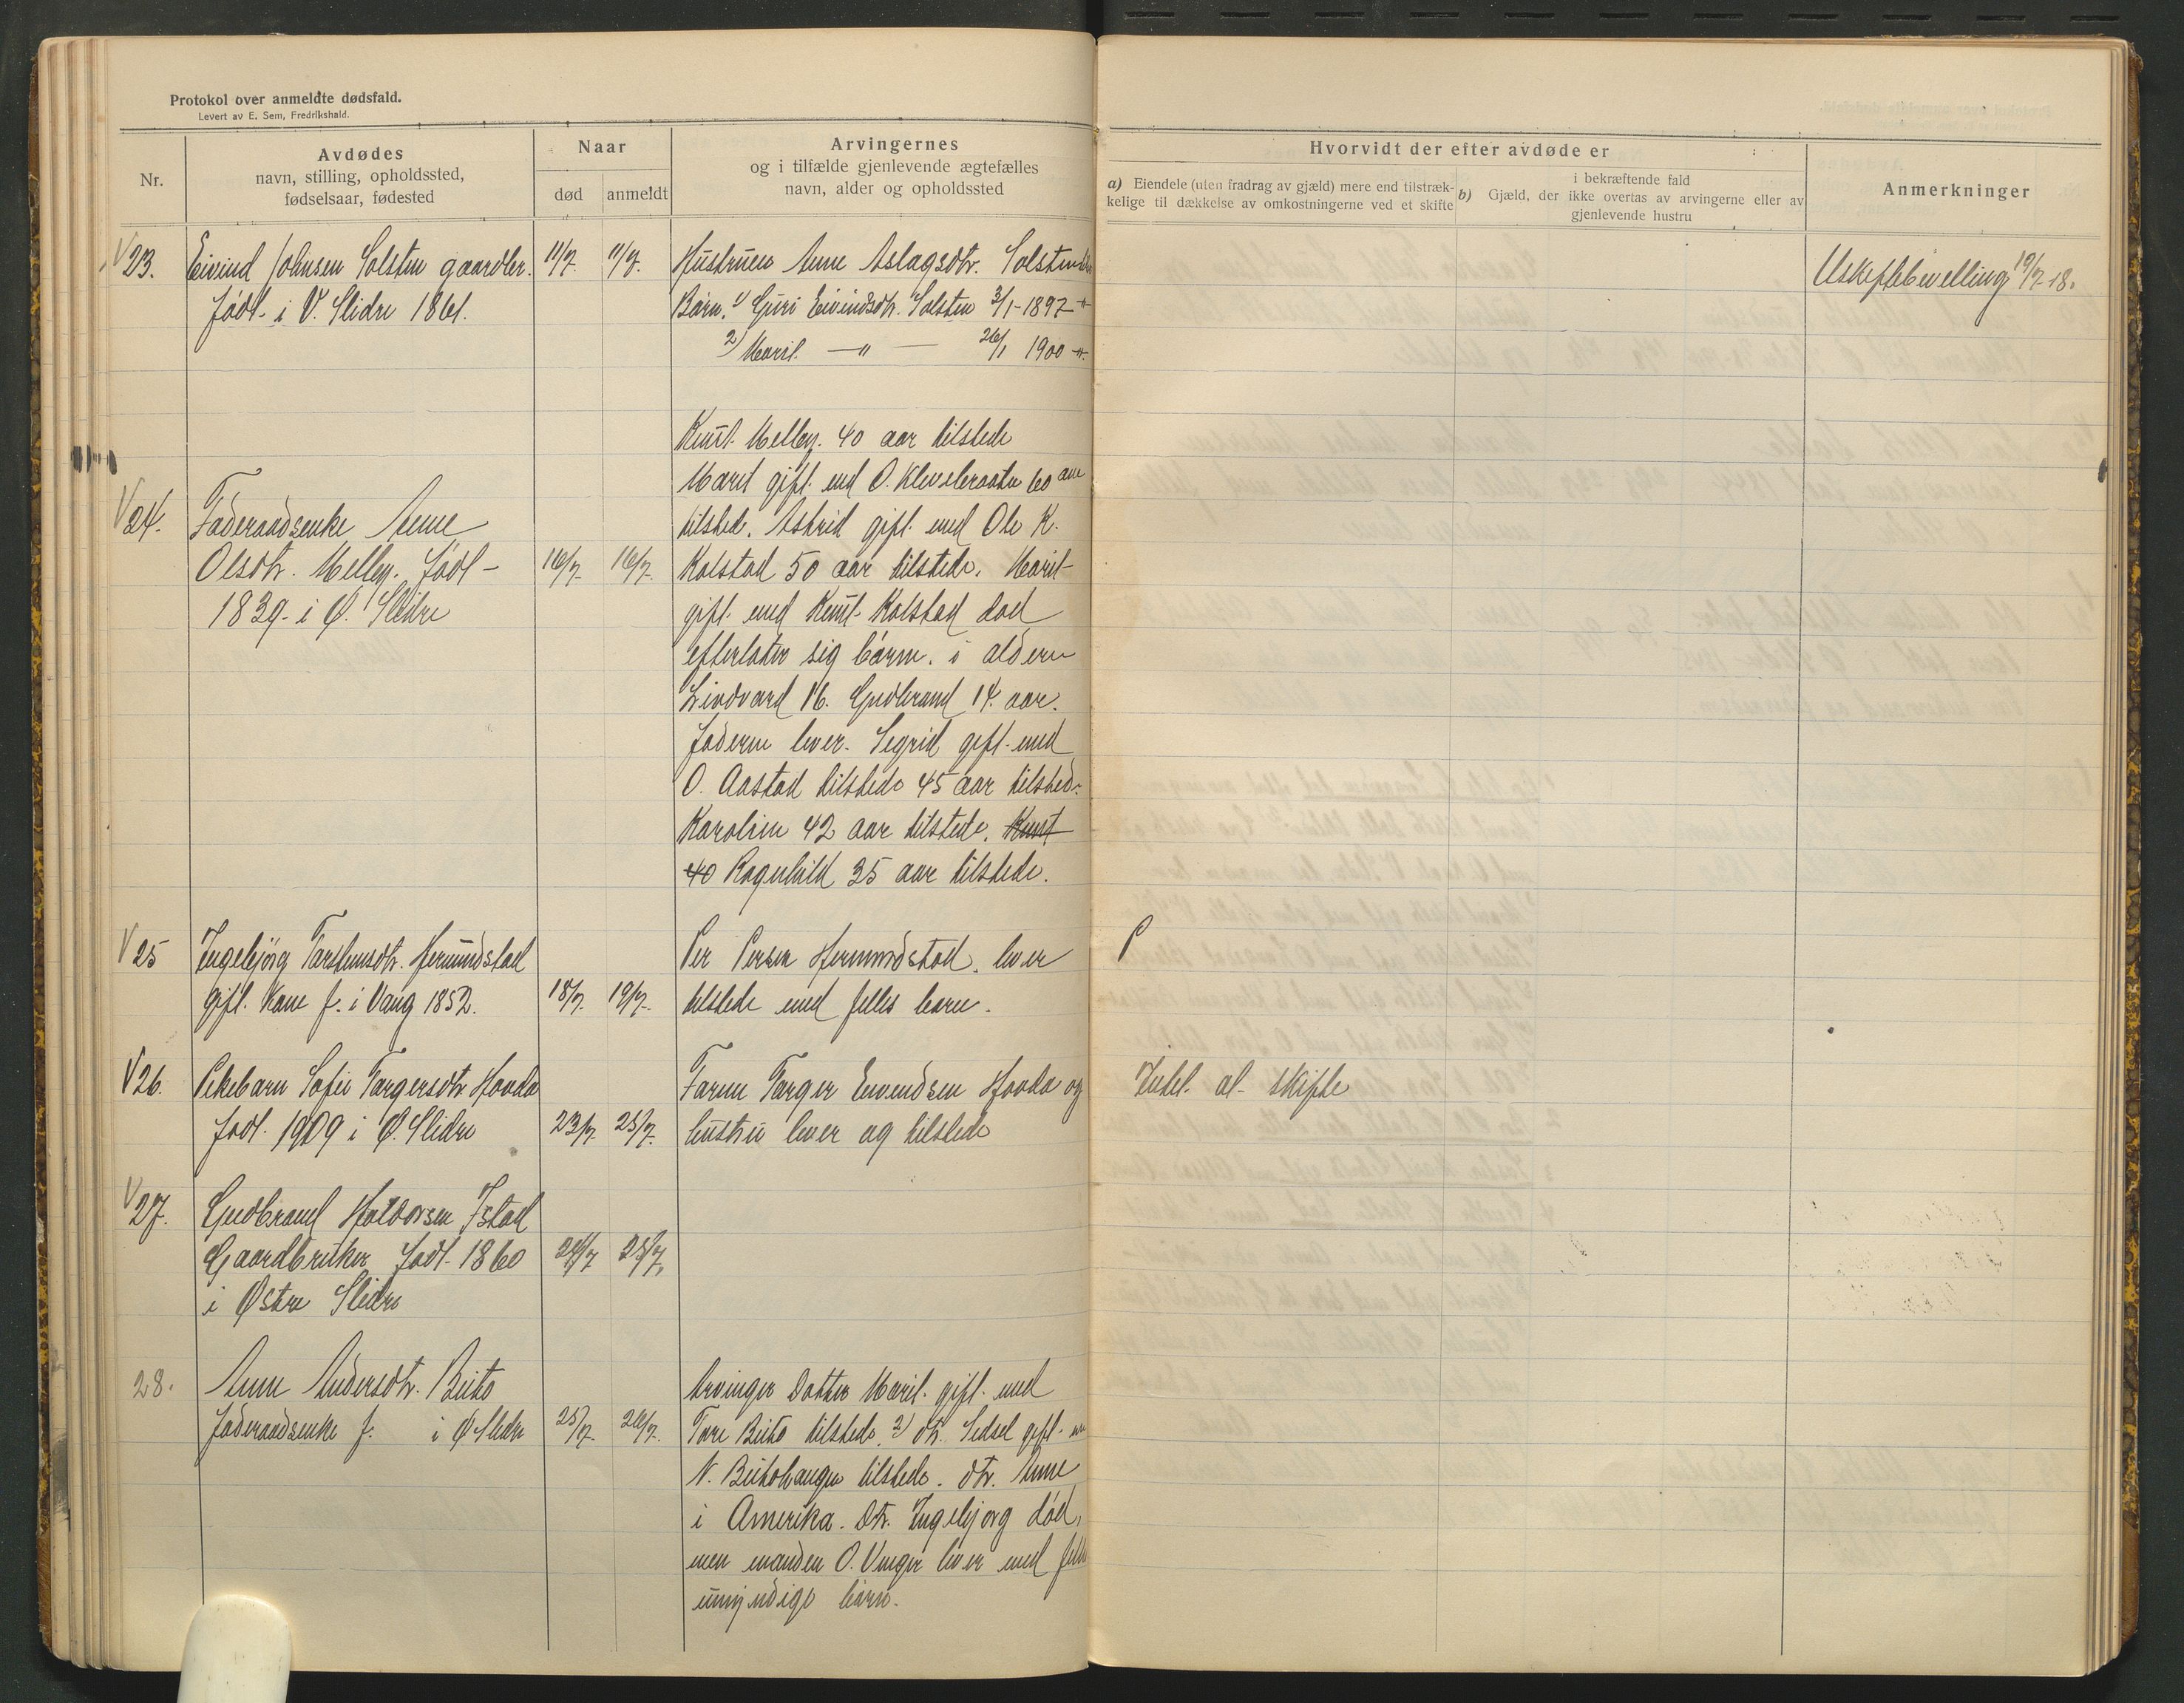 Protokol over anmeldte dødsfald.
Levert av E. Sem, Fredrikshald.
Nr.
Avdødes
navn, stilling, opholdssted,
fødselsaar, fødested
Naar
død
anmeldt
Arvingernes
og i tilfælde gjenlevende ægtefælles
navn, alder og opholdssted
Hvorvidt der efter avdøde er
a) Eiendele (uten fradrag av gjæld) mere end tilstræk-
kelige til dækkelse av omkostningerne ved et skifte
i bekræftende fald
b) Gjæld, der ikke overtas av arvingerne eller av
gjenlevende hustru
Anmerkninger
V 23.
Eivind Johnsen Solsten gaardbr.
født i V. Slidre 1861.
11/7.
11/7.
Hustruen Anne Aslagsdtr. Solsten
Børn. 1) Guri Eivindsdtr. Solsten 3/1-1897 -"-
2) Marit -"- 26/1 1900 -"-
Uskiftebevilling 19/7-18.
V 24.
Føderaadsenke Anne
Olsdtr. Melby. født
1839 i Ø. Slidre
16/7.
16/7.
Knut Melby. 40 aar tilstede
Marit gift med O. Klevebraaten 60 aar
tilstede. Astrid gift med Ole K.
Kolstad 50 aar tilstede. Marit
gift med Knut Kolstad død
efterlater sig børn. i alderen
Lindvard 16. Gudbrand 14. aar.
faderen lever. Sigrid gift med
O. Aastad tilstede 45 aar tilsted.
Karoline 42 aar tilstede. Knut
40 Ragnhild 35 aar tilstede.
V 25
Ingebjørg Torstensdtr. Hermundstad
gift. Kone f. i Vang 1852.
18/7.
19/7.
Per Persen Hermundstad. lever
tilstede med felles barn.
V 26.
Pikebarn Sofie Torgersdtr. Hovda
født. 1909 i Ø. Slidre
23/7.
25/7.
Faren Torger Eivendsen Hovda og
hustru lever og tilstede
Intet at skifte
V 27.
Gudbrand Haldorsen Istad
Gaardbruker født 1860
i Østre Slidre
24/7
25/7.
28.
Anne Andersdtr. Beito
føderaadsenke f. i Ø Slidre
25/7.
26/7.
Arvinger Datter Marit. gift. med
Tore Beito tilstede. 2) dtr. Sidsel gift
N. Beitohaugen tilstede. dtr. Anne
i Amerika. Dtr. Ingebjørg død,
men manden O. Vinger lever med
umyndige børn.